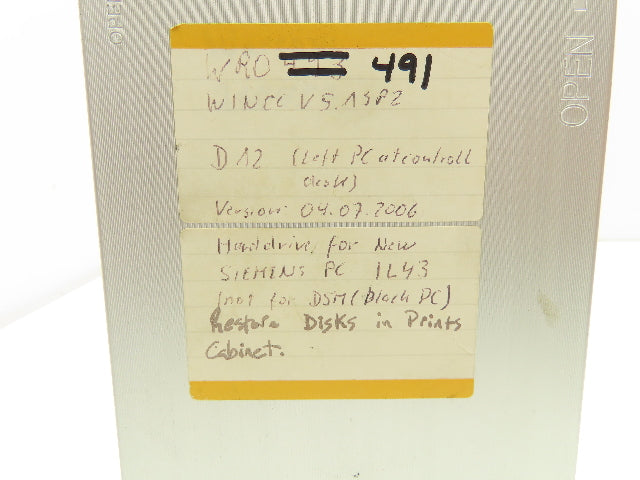 OPEN
OPEN
WRO 491
WINCC V5.1SP2
D12 (Left PC at controll
desk)
Version: 04.07.2006
Harddrive for New
SIEMENS PC IL43
(not for DSM (black PC)
Restore Disks in Prints
Cabinet.